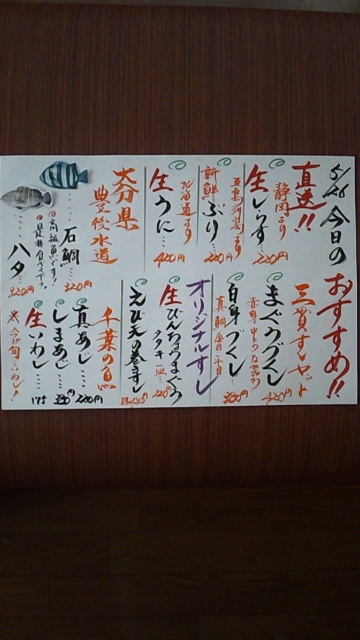 5/26 今日のおすすめ!!
直送!!
静岡より
生しらす… 220円
五島列島より
新鮮ぶり… 220円
北海道より
生うに… 420円
大分県
豊後水道
石鯛… 320円
ハタ… 320円
三貫すしセット
まぐろづくし 420円
白身づくし
真鯛
オリジナルすし
生びんちょうまぐろ
タタキ一皿…
えび天の巻きすし
千葉の魚
真あじ… 220円
しまあじ…
生いわし…